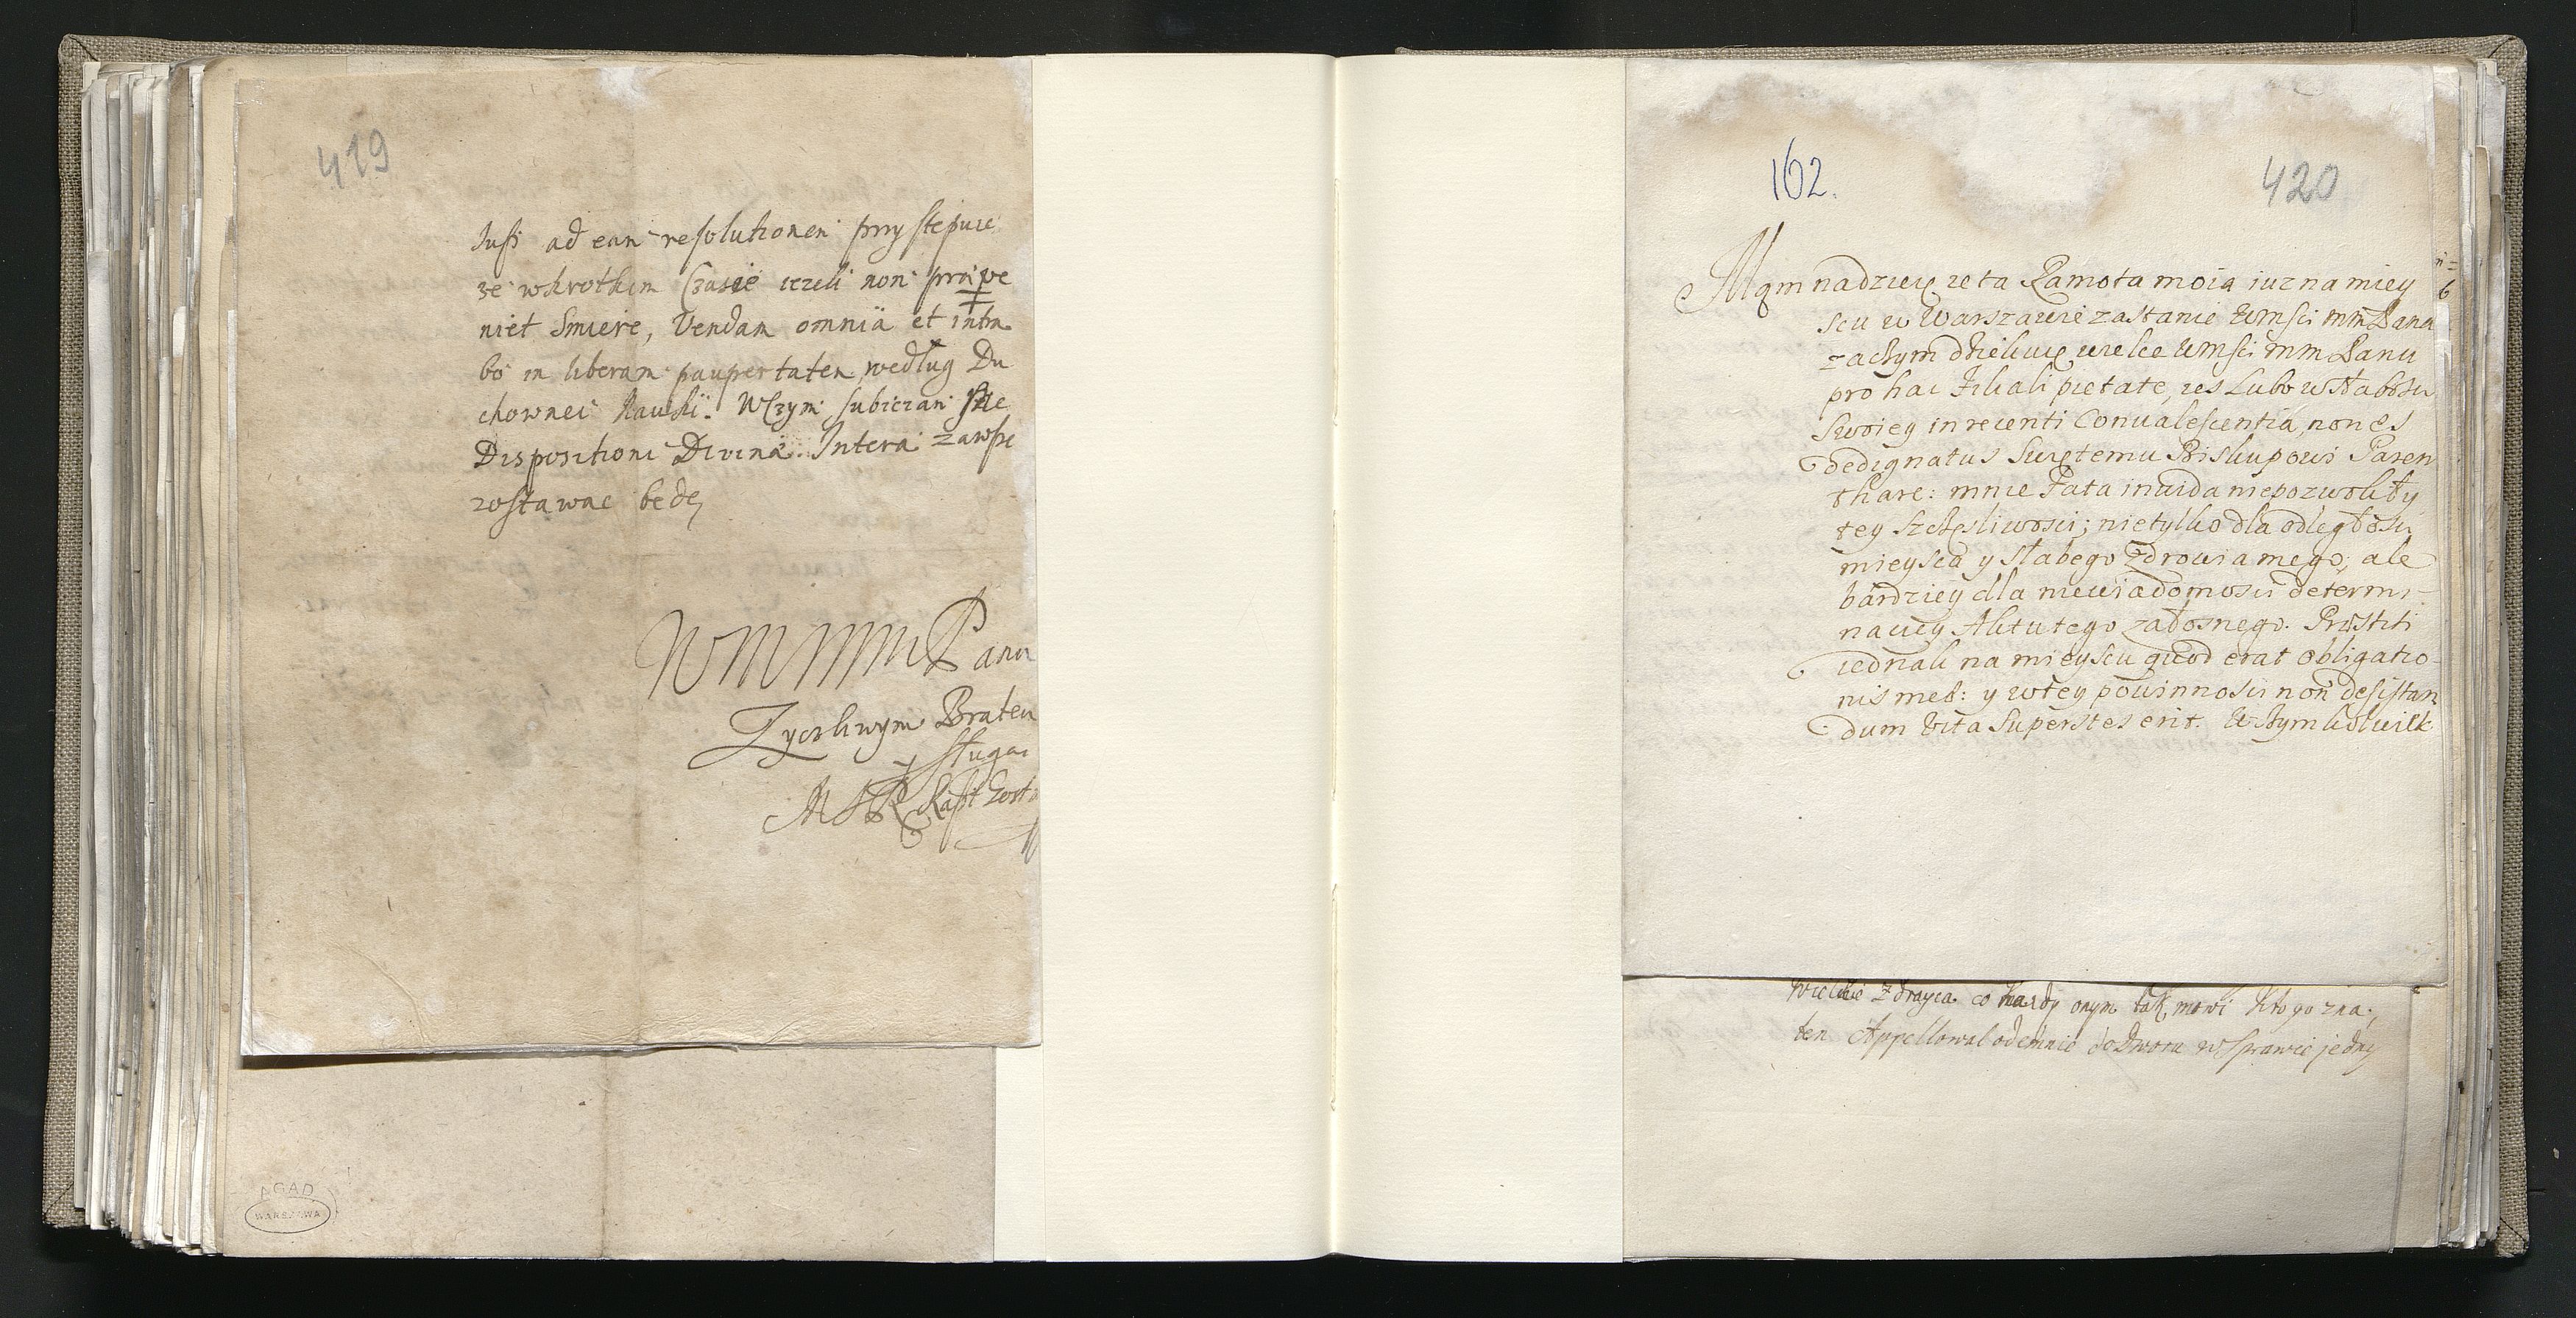 419
Jusz ad eam resolutionem przystępuie
ze wkrotkim Czasie iezeli non præve
niet Smierc, Vendam omnia et intra
bo in liberam paupertatem według Du
chownei Nauki. W Czym subiiciam sie
Dispositioni Divinæ. Interea zawsze
zostawac bede
WMMMPana
Zyczliwym Bratem
y sługa
Kaszt
AGAD
WARSZAWA
162.
420
Mam nadzieię ze ta Ramota moia iuz na miey
scu w Warszawie zastanie Wmsci mm Pana
zaczym dziekuię wielce Wmsci mm Panu
pro hac Filiali pietate, zes Lubo w słabosci
swoiey in recenti Convalescentia, non es
dedignatus Swiętemu Biskupowi Paren
thare: mnie Fata invida niepozwoliły
tey szczęsliwosci; nietylko dla odległosci
mieysca y słabego zdrowia mego, ale
bardziey dla niewiadomosci determi-
nacıey Aktu tego załosnego. Præstiti
iednak na mieyscu quod erat obligatio-
nis meæ: y w tey powinnosci non desistam
dum vita superstes erit. W czym kolwiek
Wielki Zdrayca co kazdy onym tak mowi kto go zna;
ten Appellował odemnie do Dworu w Sprawie jedny